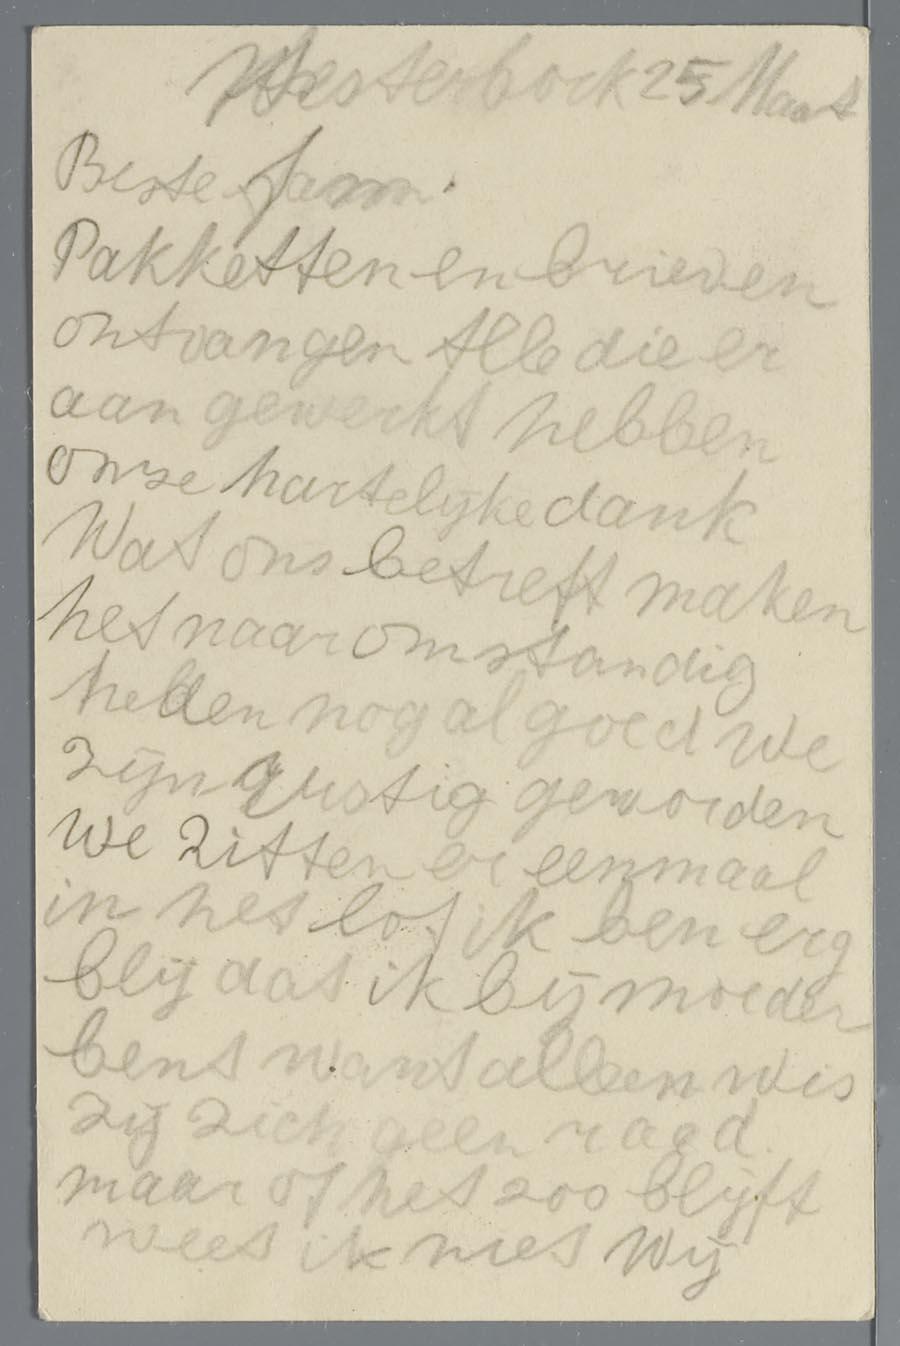 Westerbork 25 Maart
Beste fam.
Pakketten en brieven
ontvangen Alle die er
aan gewerkt hebben
onze hartelijke dank
Wat ons betreft maken
het naar omstandig
heden nog al goed we
zijn rustig geworden
we zitten er eenmaal
in het lot ik ben erg
blij dat ik bij moeder
bent want alleen wis
zij zich geen raad.
maar of het zoo blijft
weet ik niet Wij